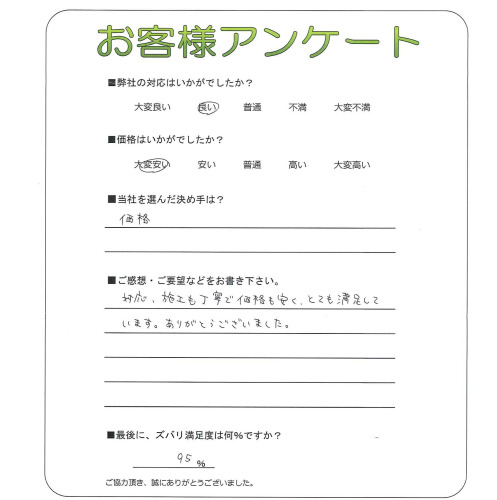 お客様アンケート
■弊社の対応はいかがでしたか？
大変良い 良い 普通 不満 大変不満
■価格はいかがでしたか？
大変安い 安い 普通 高い 大変高い
■当社を選んだ決め手は？
価格
■ご感想・ご要望などをお書き下さい。
対応、施工も丁寧で価格も安く、とても満足して
います。ありがとうございました。
■最後に、ズバリ満足度は何％ですか？
95 ％
ご協力頂き、誠にありがとうございました。